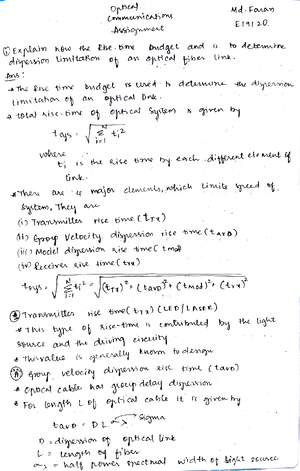 Optical
Communications
Assignment
Md. Faran
E19120.
① Explain how the Rise-time budget and is to determine
dispersion limitation of an optical fiber link.
Ans:
→ The Rise time budget is used to determine the dispersion
limitation of an optical link.
* total rise-time of optical system is given by
t sys = √ Σ i=1 N ti²
where
ti is the rise time by each different element of
link.
* There are 4 major elements, which limits speed of
system. They are
(i) Transmitter rise time (tTx)
(ii) Group Velocity dispersion rise time (tGVD)
(iii) Model dispersion rise time (t mod)
(iv) Receiver rise time (trx)
tsys = √ Σ i=1 N ti² = √ (tTx)² + (tGVD)² + (tmod)² + (trx)²
Transmitter rise time (tTx) (LED/LASER)
* This type of rise-time is contributed by the light
source and the driving circuitry
* This value is generally known to design
Group velocity dispersion rise time (tGVD)
* Optical cable has group delay dispersion
* For length L of optical cable it is given by
tGVD = D L σλ → Sigma
D = dispersion of optical link
L = length of fiber
σλ = half power spectral width of light source